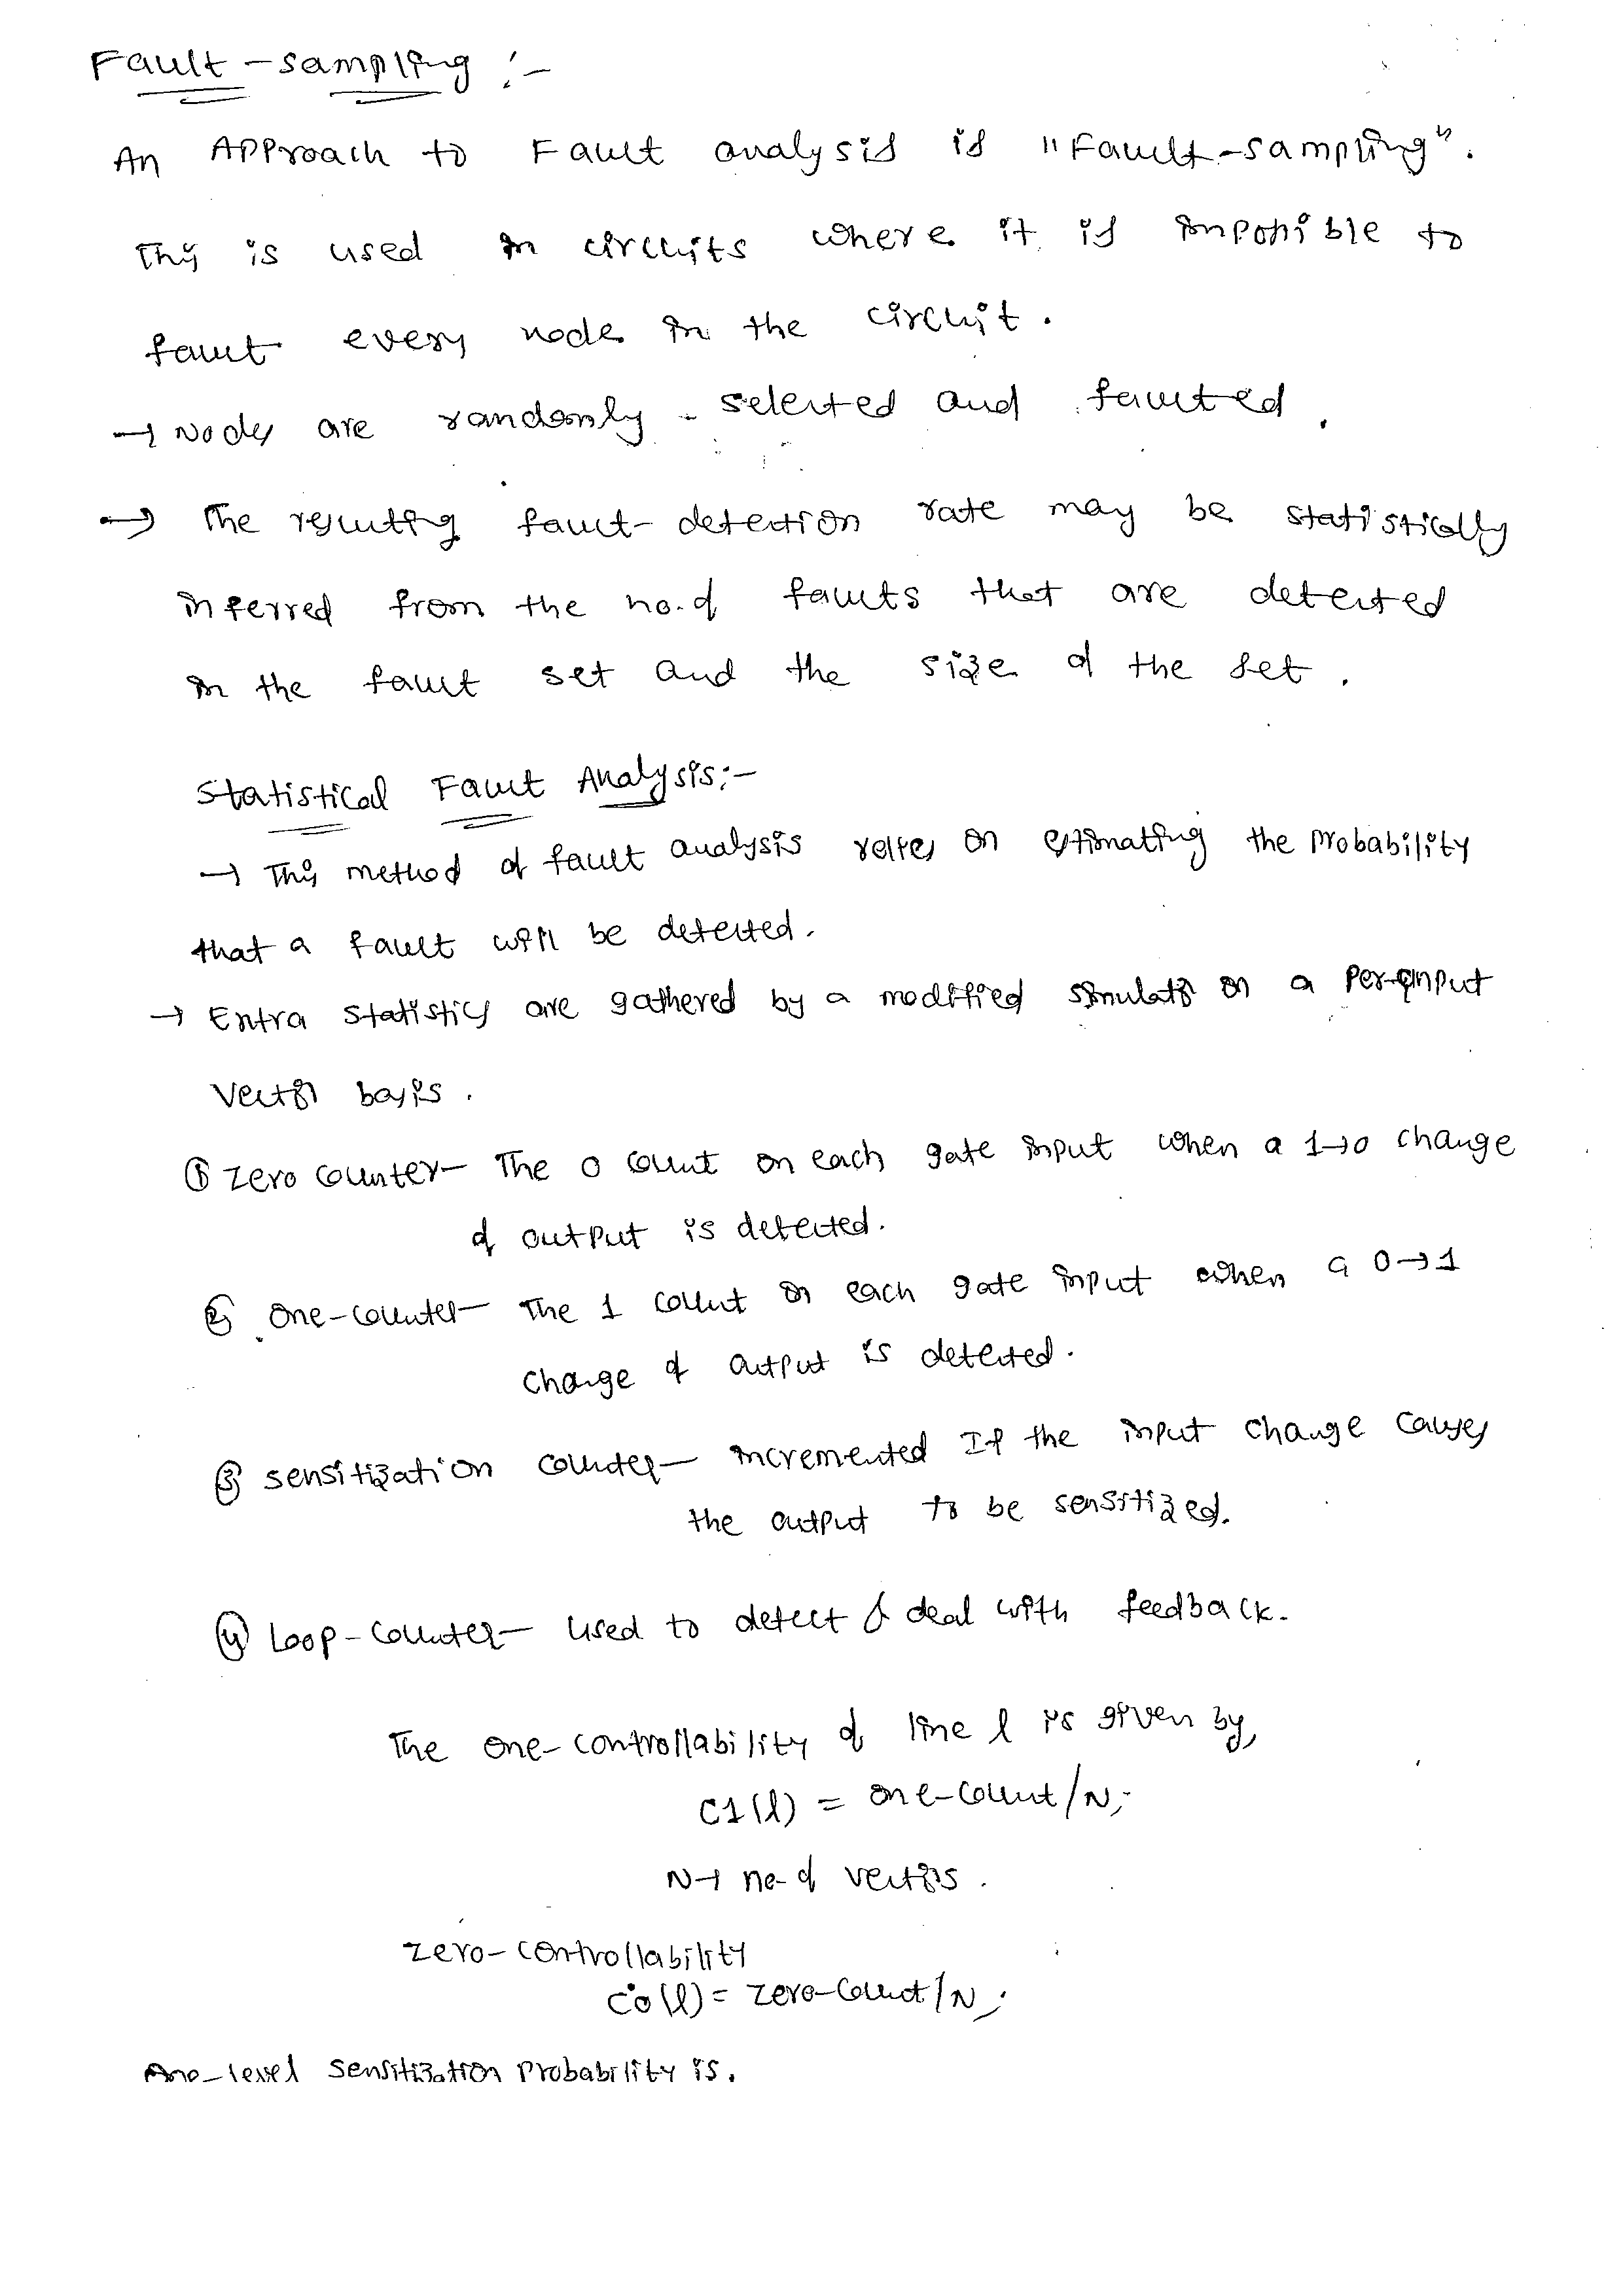 Fault-sampling :-
An Approach to Fault analysis is "Fault-sampling".
This is used in circuits where it is impossible to
fault every node in the circuit.
→ Nodes are randomly selected and faulted.
→ The resulting fault-detection rate may be statistically
inferred from the no. of faults that are detected
in the fault set and the size of the set.
Statistical Fault Analysis:-
→ This method of fault analysis relies on estimating the probability
that a fault will be detected.
→ Extra statistics are gathered by a modified simulator on a per-input
vector basis.
① Zero counter- The 0 count on each gate input when a 1→0 change
of output is detected.
② One-counter- The 1 count on each gate input when a 0→1
change of output is detected.
③ sensitization counter- incremented If the input change causes
the output to be sensitized.
④ Loop-counter- used to detect & deal with feedback.
The one-controllability of line l is given by,
C1(l) = one-count/N;
N→ no. of vectors.
zero-controllability
C0(l) = zero-count/N;
level sensitization probability is.